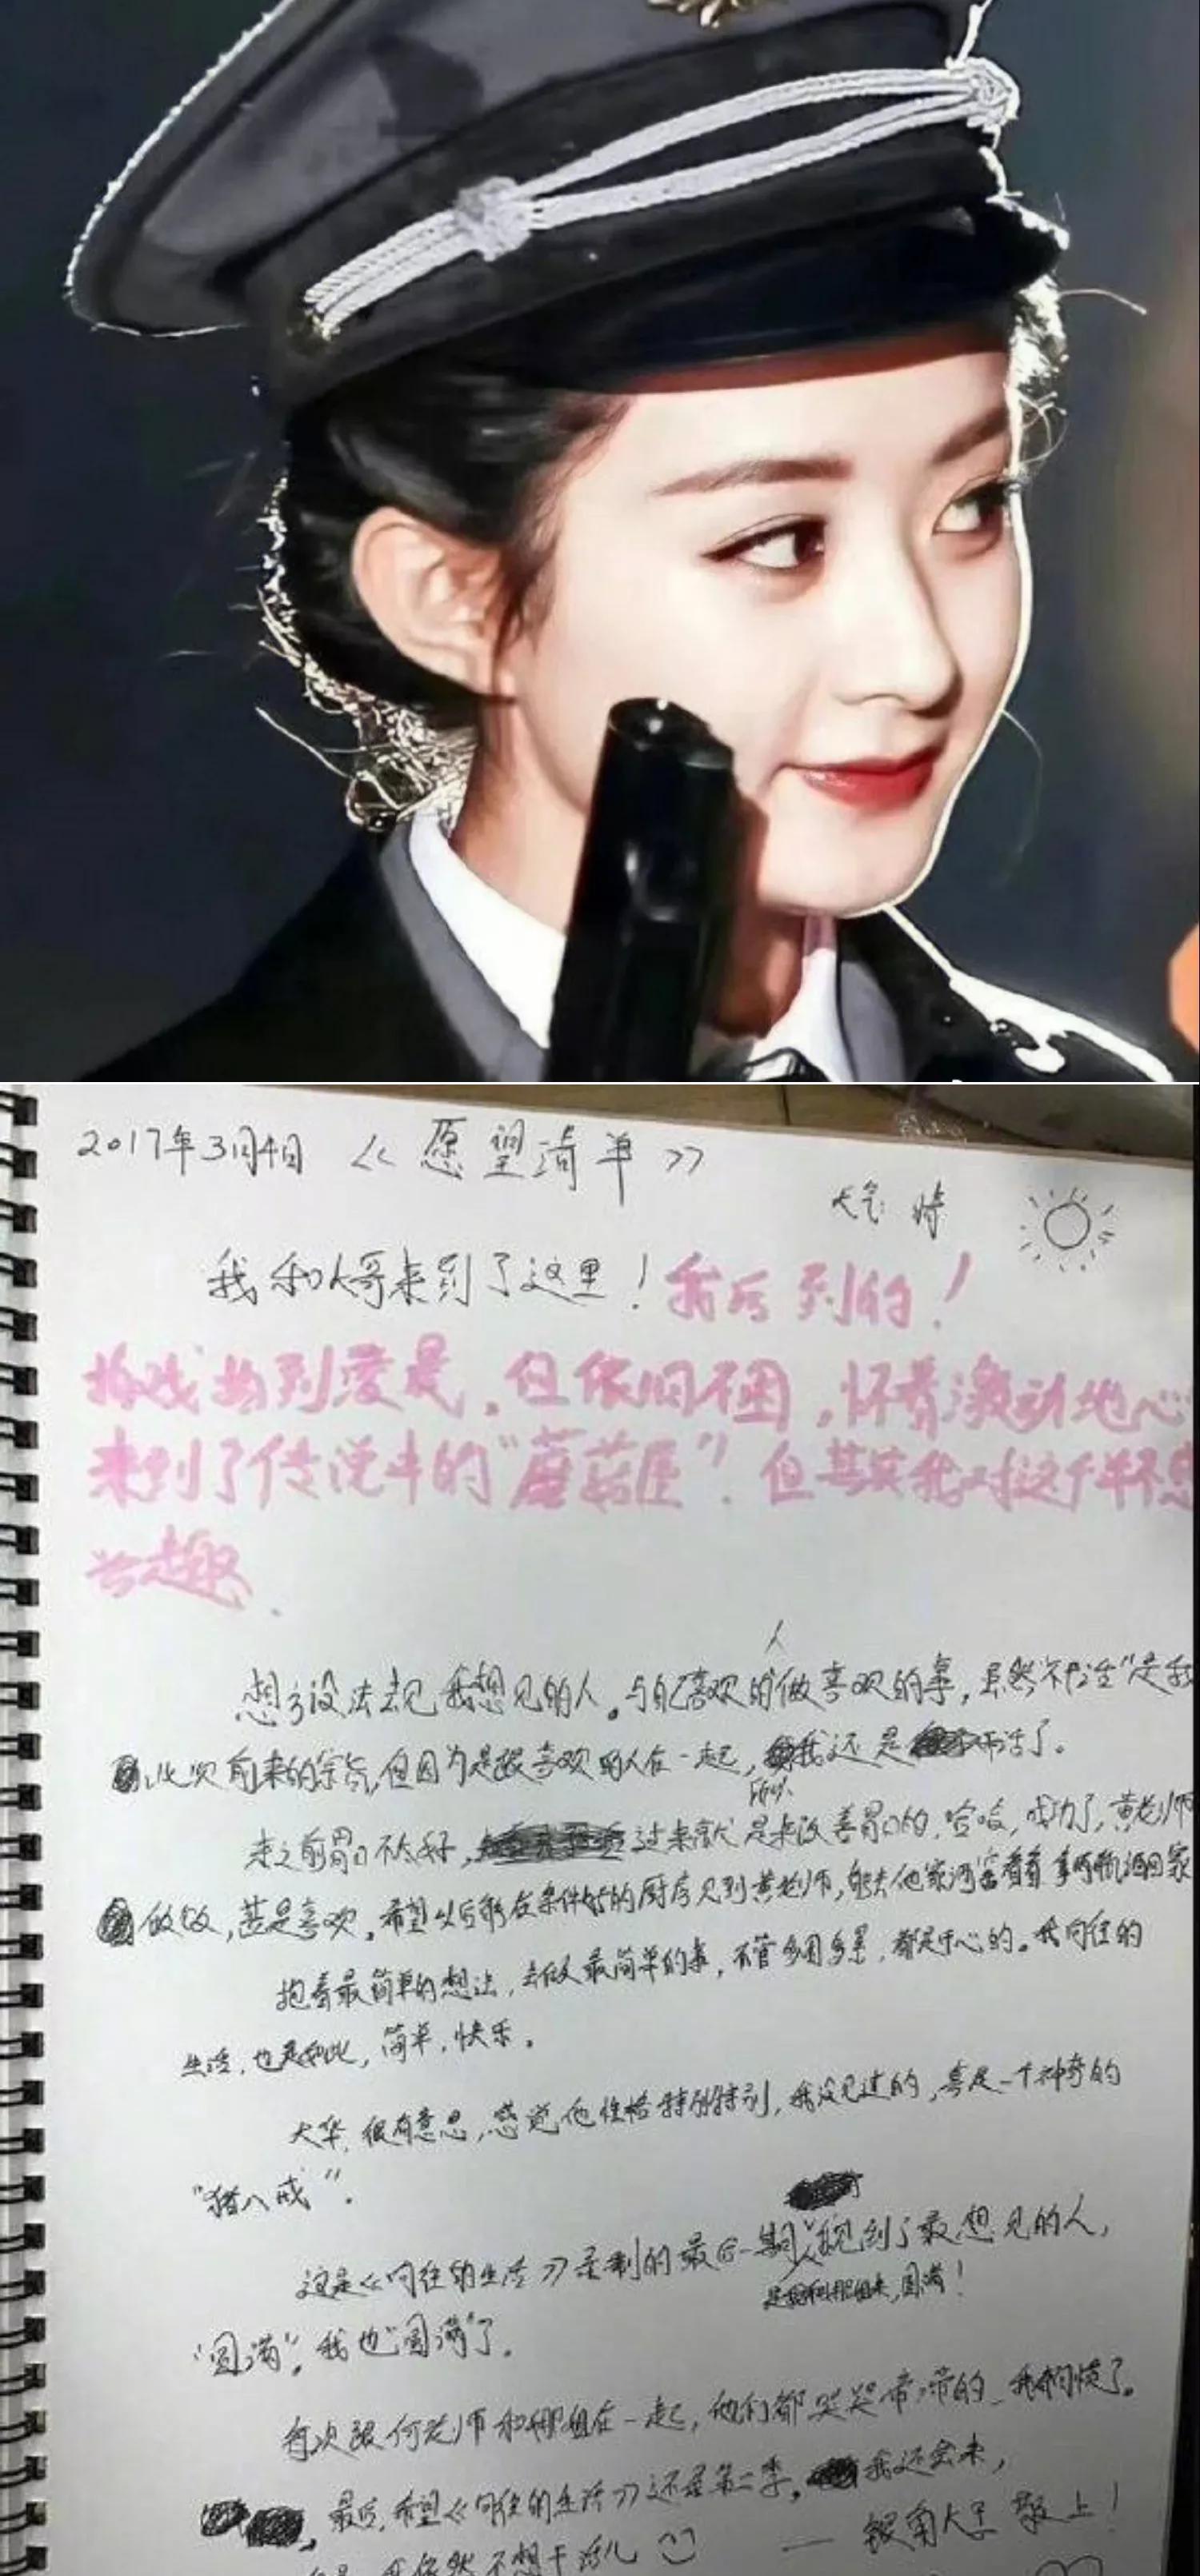 2017年3月4日 《愿望清单》
天气 晴
我和大哥来到了这里！我后到的！
拍戏拍到凌晨，但依旧不困，怀着激动地心
来到了传说中的“蘑菇屋”。但其实我对这个并不感
兴趣.
想方设法去见我想见的人。与自己喜欢的人做喜欢的事，虽然“不干活”是我
此次前来的宗旨,但因为是跟喜欢的人在一起，我还是干活了。
来之前胃口不太好，所以过来就是来改善胃口的，哈哈，成功了，黄老师
做饭，甚是喜欢。希望以后能在条件好的厨房见到黄老师，能去他家酒窖看看 拿两瓶酒回家
抱着最简单的想法，去做最简单的事，不管多困多累，都是开心的。我向往的
生活，也是如此，简单，快乐。
大华，很有意思，感觉他性格特别特别，我没见过的，算是一个神奇的
“猪八戒”。
这是《向往的生活》录制的最后一期，我见到了最想见的人，
圆满！
“圆满”，我也“圆满”了。
每次跟何老师和娜姐在一起，他们都哭哭啼啼的
最后，希望《向往的生活》还是第二季，我还会来，
依然不想干活儿
— 银角大王 敬上！